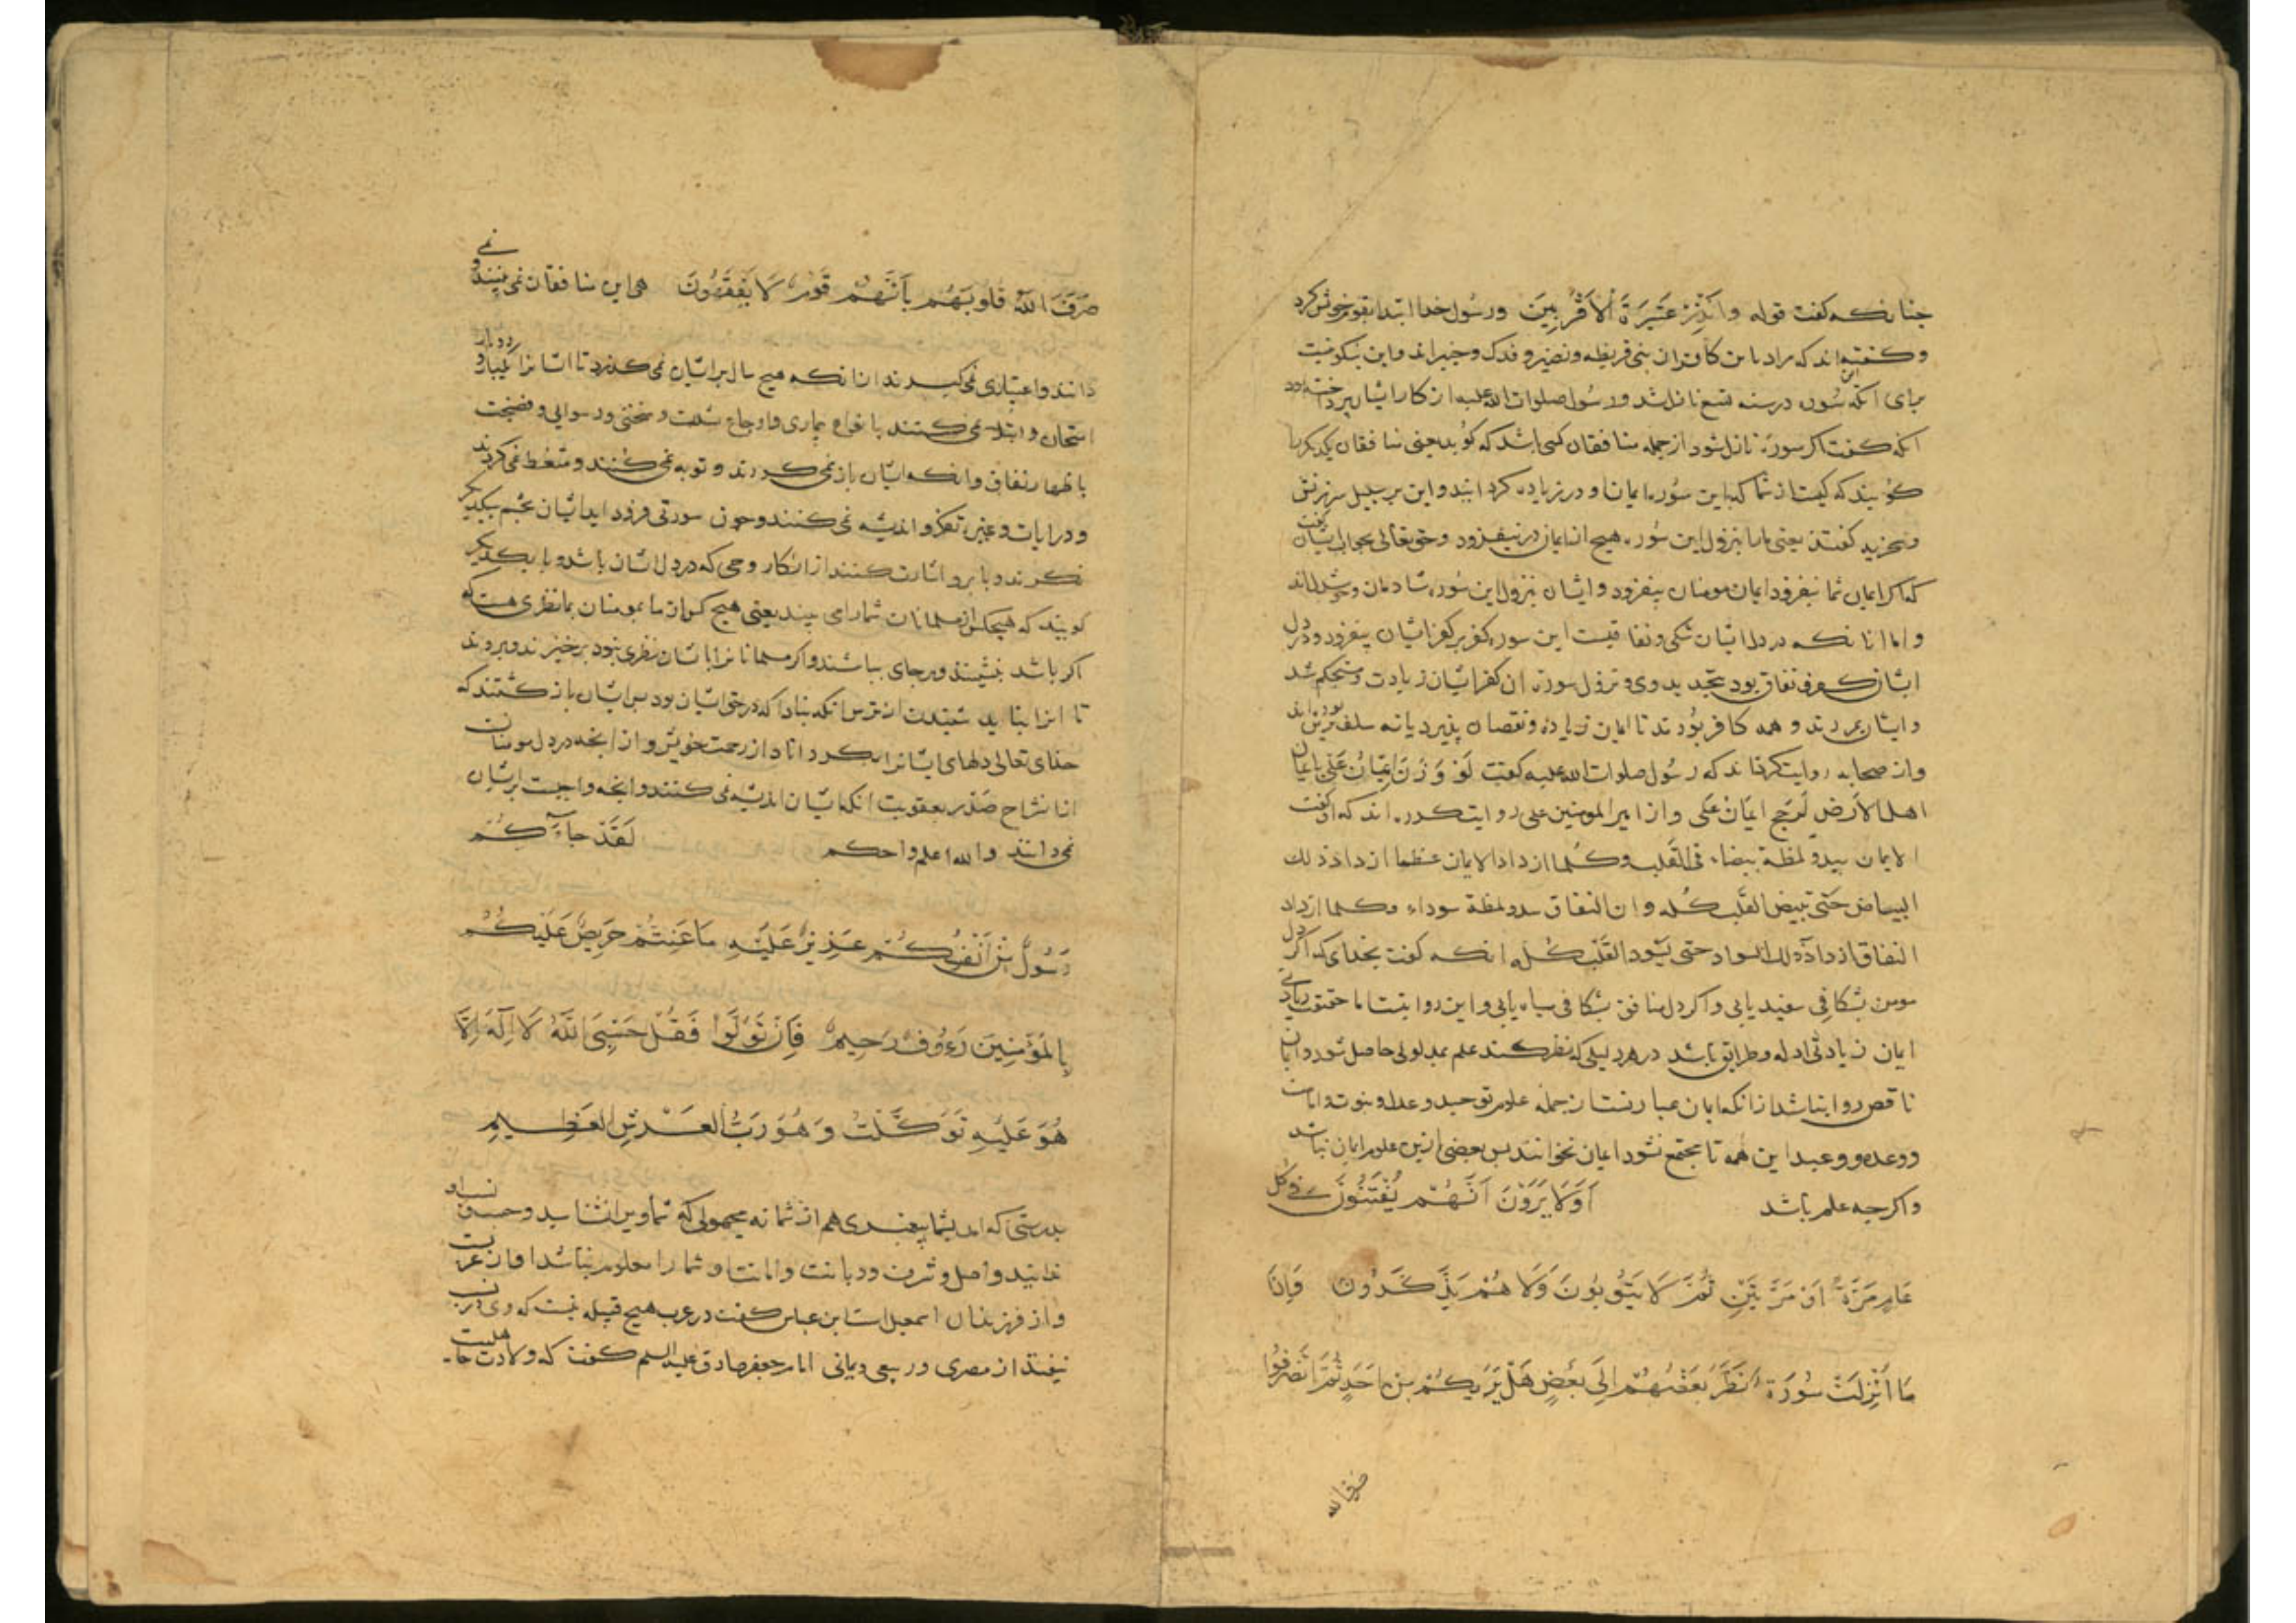 جنانکه کفت قوله وَاَنْذِرْ عَشِیرَةَ الْاَقْرَبِینَ ورسُول خدا ابتدا بقوم خویش کرد
وکفته‌اند که مراد باین کافران بنی قریظه ونضیر وفدک وخیبراند واین نیکونیست
برای انکه این سُوره درسنه تسع نازل شد ورسُول صلوات الله علیه از کار ایشان پرداخته بود
انکه کفت اکر سورة نازل شود از جمله منافقان کسی باشد که کوید یعنی منافقان یکدیکر را
کویند که کیست از شما که این سُوره ایمان او در زیاده کردانید واین بر سبیل سرزنش
وسخریه کفتند یعنی مارا بنزول این سُوره هیچ از ایمان در نیفزود وحق تعالی بجواب ایشان کفت
که اکر ایمان شما نیفزود ایمان مومنان بیفزود وایشان بنزول این سُوره شادمان وخوش‌دل‌اند
واما انانکه در دل ایشان شکی ونفاقیست این سوره کفر بر کفر ایشان بیفزود ودر دل
ایشان کفر ونفاق بود بتجدید وحی ونزول سورة ان کفر ایشان زیادت ومستحکم شد
وایشان بمردند وهمه کافر بُودند تا ایمان زیاده ونقصان پذیرد یا نه سلف برین بوده‌اند
واز صحابه روایت کرده‌اند که رسُول صلوات الله علیه کفت لَوْ وُزِنَ اِیمَانُ عَلِیٍّ بایمان
اهل الاَرض لَرَجح ایمَانُ عَلی واز امیرالمومنین علی روایت کرده‌اند که او کفت
الایمان یبدو لمظة بیضاء فی القلب وکُلما ازداد الایمان عظما ازداد ذلک
البیاض حَتّی تبیض القلب کُله وان النفاق یبدو لمظة سوداء وکلما ازداد
النفاق ازداد ذلک السواد حتی یسُود القَلب کُله انکه کفت بخدای که اکر دل
مومن بشکافی سفید یابی واکر دل منافق بشکافی سیاه یابی واین روایتست اما حقیقت زیادتی
ایمان زیادتی ادله وطرایق باشد در هر دلیلی که نظر کنند علم بمدلولی حاصل شود وایمان
ناقص روا نباشد ازانکه ایمان عبارتست از جمله علوم توحید وعدل ونبوت وامامت
ووعد ووعید این همه تا مجتمع نشود ایمان نخوانند پس بعضی ازین علوم ایمان نباشد
واکرچه علم باشد اَوَلَا یَرَوْنَ اَنَّهُمْ یُفْتَنُونَ فِی کُلِّ
عَامٍ مَرَّةً اَوْ مَرَّتَیْنِ ثُمَّ لَا یَتُوبُونَ وَلَا هُمْ یَذَّکَّرُونَ وَاِذَا
مَا اُنْزِلَتْ سُورَةٌ نَظَرَ بَعْضُهُمْ اِلَی بَعْضٍ هَلْ یَرَیکُمْ مِنْ اَحَدٍ ثُمَّ انْصَرَفُوا
صرف الله
صَرَفَ اللهُ قُلُوبَهُمْ بِاَنَّهُمْ قَوْمٌ لَا یَفْقَهُونَ هی این منافقان نمی‌بینند ونمی
دانند واعتباری نمی‌کیرند انانکه هیچ سال بر ایشان نمی‌کذرد تا ایشانرا یکبار ودوبار
امتحان وابتلا نمی‌کنند بانواع بیماری واوجاع شدت وسختی ورسوایی وفضیحت
باظهار نفاق وانکه ایشان باز نمی‌کردند وتوبه نمی‌کنند ومتعظ نمی‌کردند
ودر ایات وعبر تفکر واندیشه نمی‌کنند وچون سورتی فرود اید ایشان بچشم بیکدیکر
نکرند وبابرو اشارت کنند از انکار وحی که در دل ایشان باشد وبا یکدیکر
کویند که هیچکس از مسلمانان شمارا می بیند یعنی هیچ کس از مومنان بما نظری هست که
اکر باشد بنشینند وبرجای بباشند واکر مسلمانانرا با ایشان نظری نبود برخیزند وبروند
تا انرا نباید شنیدن از ترس انکه نبادا که در حق ایشان بود پس ایشان باز کشتند که
خدای تعالی دلهای ایشانرا بکرداناد از رحمت خویش واز انچه در دل مومنان
از انشراح صدر بعقوبت انکه ایشان اندیشه نمی‌کنند وانچه واجبست بر ایشان
نمی‌دانند والله اعلم واحکم لَقَدْ جَاءَکُمْ
رَسُولٌ مِنْ اَنْفُسِکُمْ عَزِیزٌ عَلَیْهِ مَا عَنِتُّمْ حَرِیصٌ عَلَیْکُمْ
بِالْمُؤْمِنِینَ رَءُوفٌ رَحِیمٌ فَاِنْ تَوَلَّوْا فَقُلْ حَسْبِیَ اللهُ لَا اِلَهَ اِلَّا
هُوَ عَلَیْهِ تَوَکَّلْتُ وَهُوَ رَبُّ الْعَرْشِ الْعَظِیمِ
بدرستی که امد بشما پیغمبری هم از شما نه مجهولی که شما ویرا نشناسید وحسب ونسب او
ندانید واصل وشرف ودیانت وامانت او شما را معلوم نباشد او از عربست
واز فرزندان اسمعیل است ابن عباس کفت در عرب هیچ قبیله نیست که وی در نسب
نیفتد از مضری وربیعی ویمانی امام جعفر صادق علیه السلم کفت که ولادت جاهلیت